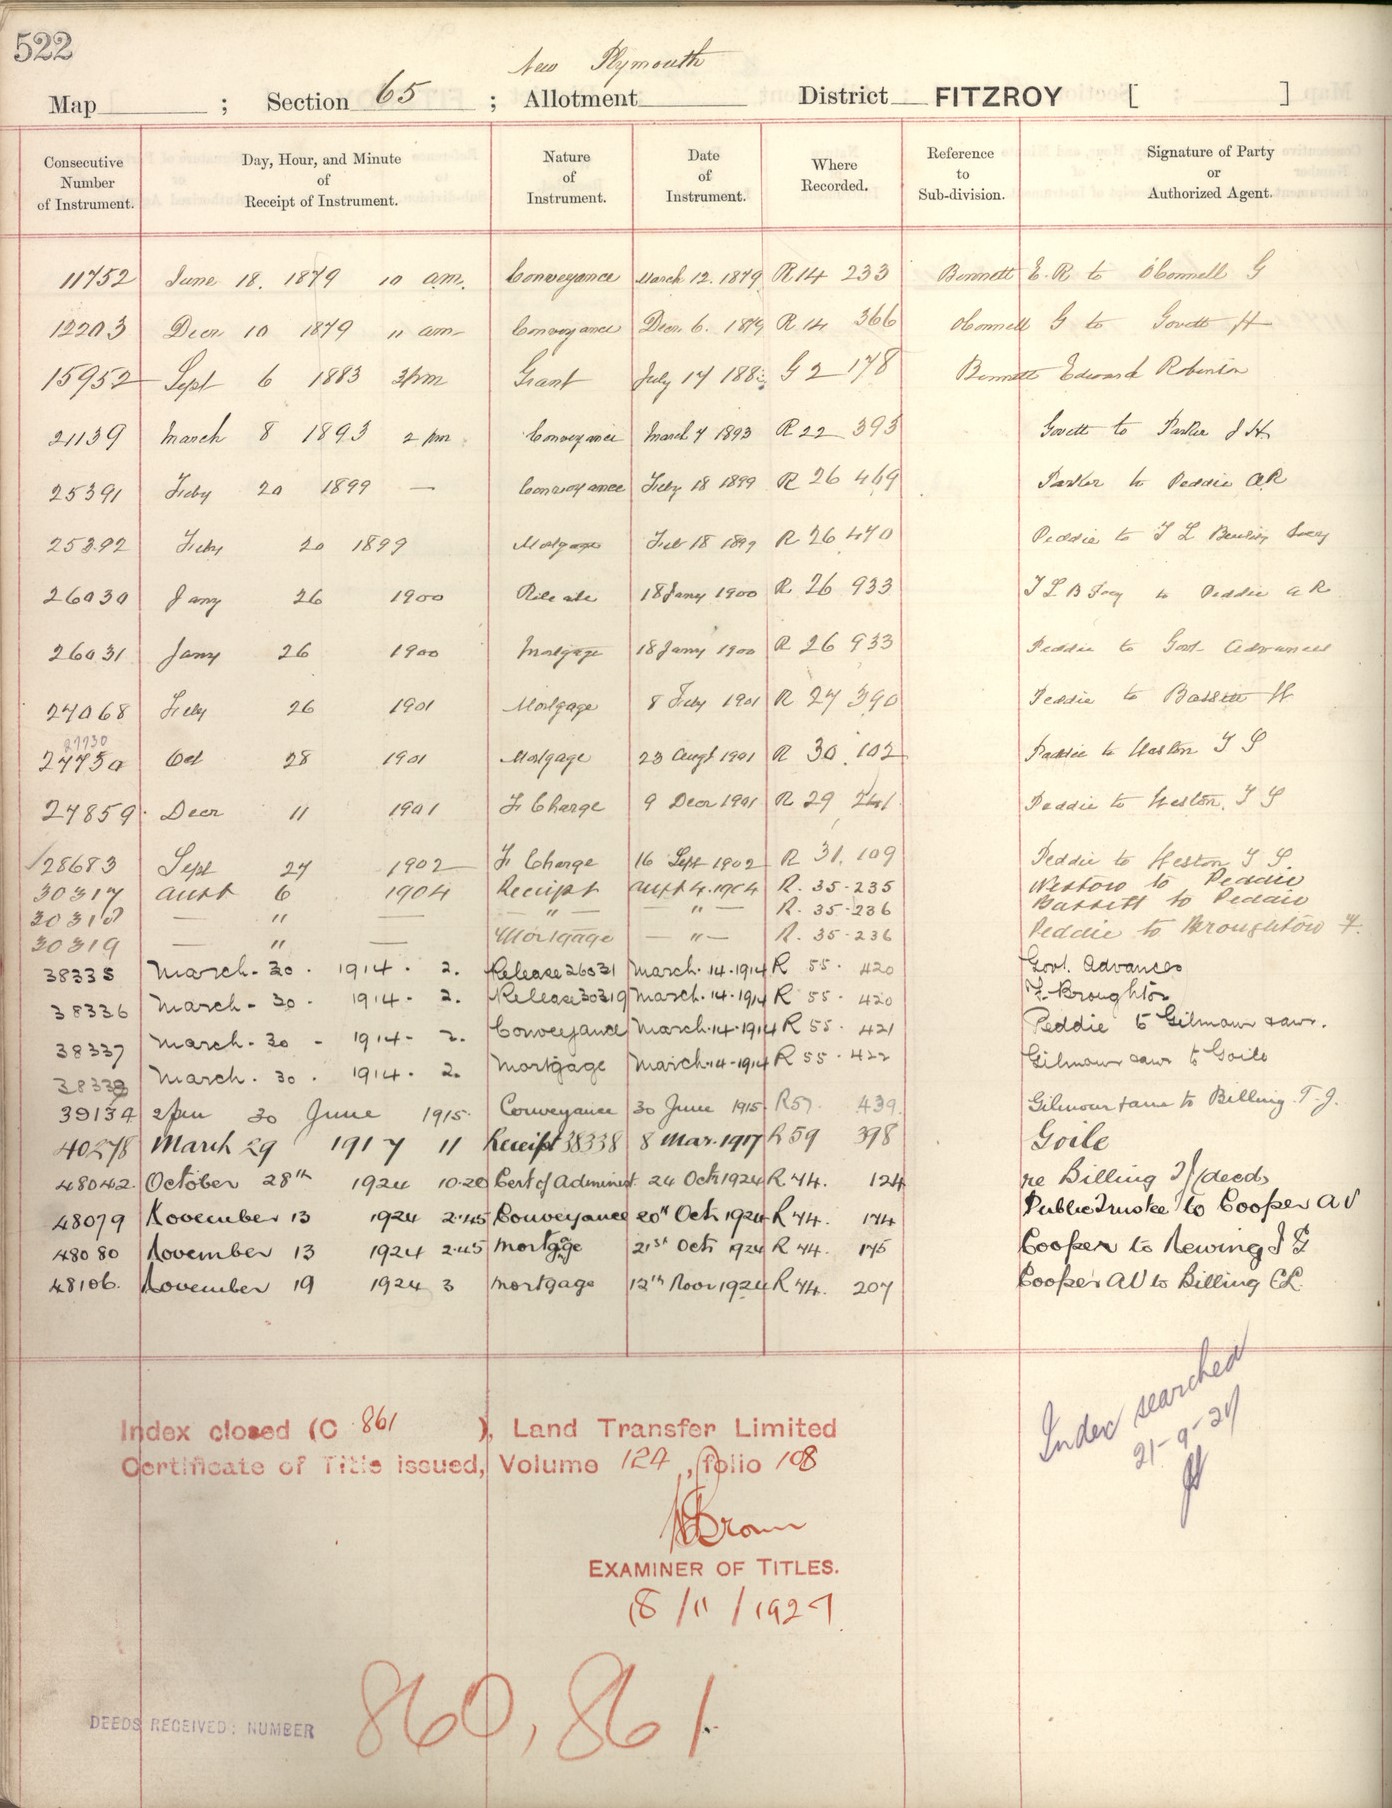 522
New Plymouth
Map ; Section 65 ; Allotment District FITZROY [ ]
Consecutive Number of Instrument. Day, Hour, and Minute of Receipt of Instrument. Nature of Instrument. Date of Instrument. Where Recorded. Reference to Sub-division. Signature of Party or Authorized Agent.
11752 June 18. 1879 10 am. Conveyance March 12. 1879 R14 233 Bennett E. R to O'Connell G
12203 Decr 10 1879 11 am Conveyance Decr 6. 1879 R 14 366 O'Connell G to Govett H
15952 Sept 6 1883 3pm Grant July 17 188 G 2 178 Bennett Edward Robinson
21139 March 8 1893 2 pm Conveyance March 7 1893 R 22 393 Govett to Parker J H
25391 Feby 20 1899 — Conveyance Feby 18 1899 R 26 469 Parker to Peddie A R
25392 Feby 20 1899 Mortgage Feb 18 1899 R 26 470 Peddie to T L Socy
26030 Jany 26 1900 Release 18 Jany 1900 R 26 933 T L B Socy to Peddie A R
26031 Jany 26 1900 Mortgage 18 Jany 1900 R 26 933 Peddie to Govt Advances
27068 Feby 26 1901 Mortgage 8 Feby 1901 R 27 390 Peddie to Bassett H
27730
27730 Oct 28 1901 Mortgage 23 Augt 1901 R 30. 102 Peddie to Weston T S
27859 Decr 11 1901 F Charge 9 Decr 1901 R 29 741 Peddie to Weston. T S
28683 Sept 27 1902 F Charge 16 Sept 1902 R 31. 109 Peddie to Weston T S.
30317 Augt 6 1904 Receipt Augt 4. 1904 R. 35-235 Weston to Peddie
30318 — " — — " — — " — R. 35-236 Bassett to Peddie
30319 — " — Mortgage — " — R. 35-236 Peddie to Broughton F.
38335 March. 30. 1914. 2. Release 26031 March. 14. 1914 R 55. 420 Govt. Advances
38336 March - 30. 1914 - 2. Release 30319 March. 14. 1914 R 55. 420 F. Broughton
38337 March. 30 - 1914 - 2. Conveyance March. 14. 1914 R 55. 421 Peddie to Gilmour & anr.
38338 March. 30. 1914. 2. Mortgage March. 14. 1914 R 55. 422 Gilmour & anr to Goile
39134 2pm 30 June 1915. Conveyance 30 June 1915. R57. 439. Gilmour & anr to Billing. T. J.
40278 March 29 1917 11 Receipt 38338 8 Mar. 1917 R 59 398 Goile
48042. October 28th 1924 10.20 Cert of Administ. 24 Octr 1924 R 74. 124 re Billing T J (deced)
48079 November 13 1924 2.45 Conveyance 20th Octr 1924 R 74. 174 Public Trustee to Cooper A V
48080 November 13 1924 2.45 Mortgage 21st Octr 1924 R 74. 175 Cooper to Newing J G
48106. November 19 1924 3 Mortgage 12th Novr 1924 R 74. 207 Cooper A V to Billing E L.
Index searched
21-9-27
Index closed (C 861 ), Land Transfer Limited
Certificate of Title issued, Volume 124, folio 108
Brown
EXAMINER OF TITLES.
18/11/1927
DEEDS RECEIVED: NUMBER 860, 861